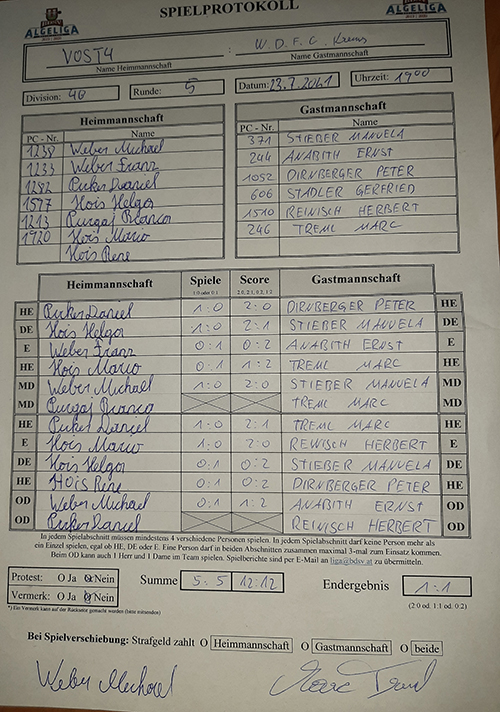 SPIELPROTOKOLL
ALGELIGA
ALGELIGA
VOST4 : W.D.F.C. Krems
Name Heimmannschaft Name Gastmannschaft
Division: 4G Runde: 5 Datum: 23.7.2021 Uhrzeit: 19 00
Heimmannschaft Gastmannschaft
PC - Nr. Name PC - Nr. Name
1238 Weber Michael 371 STIEBER MANUELA
1233 Weber Franz 244 ANABITH ERNST
1282 Pirker Daniel 1052 DIRNBERGER PETER
1577 Hois Helgor 606 STADLER GERFRIED
1213 Purgaj Bianca 1510 REINISCH HERBERT
1920 Hois Mario 246 TREML MARC
Hois Rene
Heimmannschaft Spiele Score Gastmannschaft
1:0 oder 0:1 2:0, 2:1, 0:2, 1:2
HE Pirker Daniel 1:0 2:0 DIRNBERGER PETER HE
DE Hois Helgor 1:0 2:1 STIEBER MANUELA DE
E Weber Franz 0:1 0:2 ANABITH ERNST E
HE Hois Marco 0:1 1:2 TREML MARC HE
MD Weber Michael 1:0 2:0 STIEBER MANUELA MD
MD Purgaj Bianca TREML MARC MD
HE Pirker Daniel 1:0 2:1 TREML MARC HE
E Hois Mario 1:0 2:0 REINISCH HERBERT E
DE Hois Helgor 0:1 0:2 STIEBER MANUELA DE
HE HOis Rene 0:1 0:2 DIRNBERGER PETER HE
OD Weber Michael 0:1 1:2 ANABITH ERNST OD
OD Pirker Daniel REINISCH HERBERT OD
In jedem Spielabschnitt müssen mindestens 4 verschiedene Personen spielen. In jedem Spielabschnitt darf keine Person mehr als
ein Einzel spielen, egal ob HE, DE oder E. Eine Person darf in beiden Abschnitten zusammen maximal 3-mal zum Einsatz kommen.
Beim OD kann auch 1 Herr und 1 Dame im Team spielen. Spielberichte sind per E-Mail an liga@bdsv.at zu übermitteln.
Protest: O Ja O Nein Summe 5:5 12:12 Endergebnis 1:1
Vermerk: O Ja O Nein (2:0 od. 1:1 od. 0:2)
*) Ein Vermerk kann auf der Rückseite gemacht werden (bitte mitsenden)
Bei Spielverschiebung: Strafgeld zahlt O Heimmannschaft O Gastmannschaft O beide
Weber Michael Marc Treml